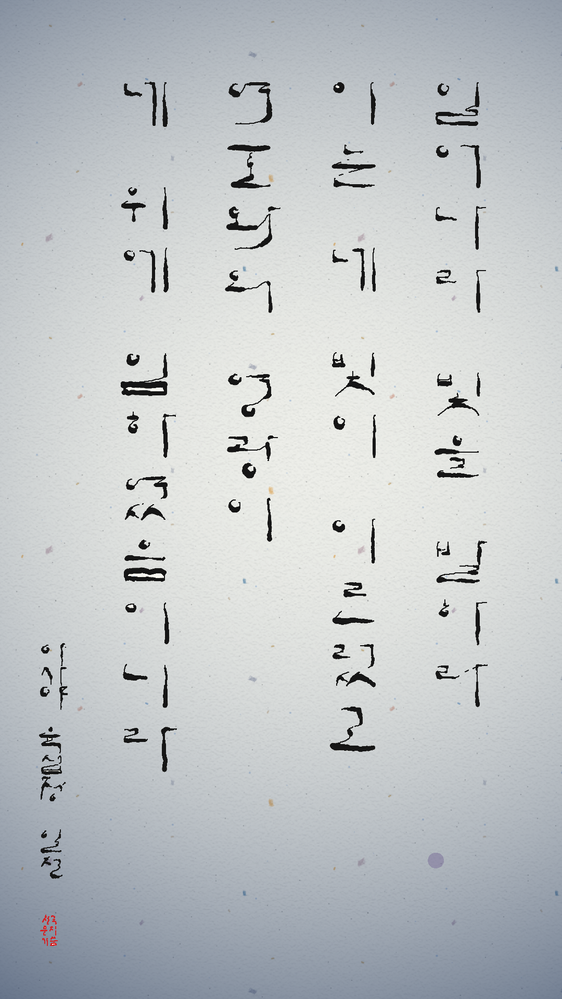 일어나라 빛을 발하라
이는 네 빛이 이르렀고
여호와의 영광이
네 위에 임하였음이니라
이사야 육십장 일절